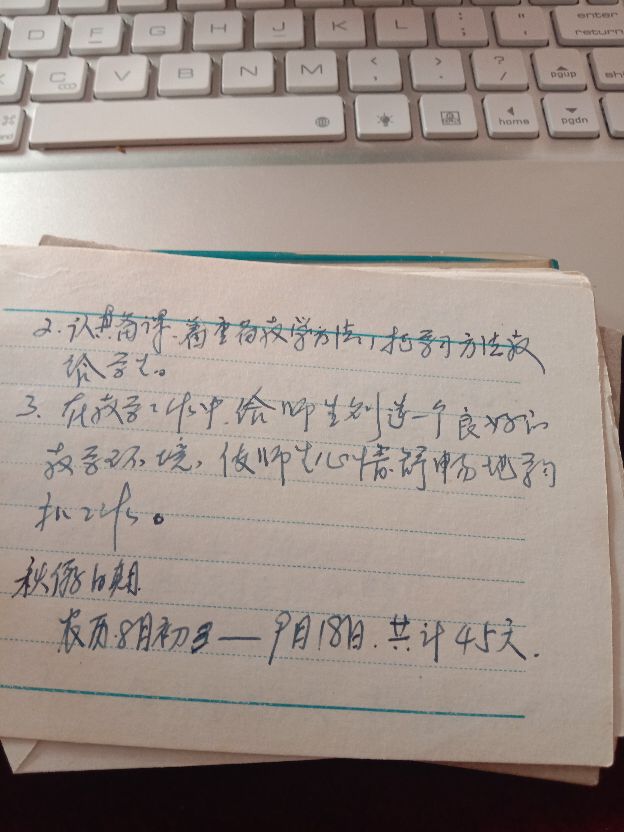 D F G H J K L : ; " ' enter return
C V B N M < , > . ? / pgup sh
home pgdn
2. 认真备课.着重备教学方法,把学习方法教
给学生。
3. 在教学工作中,给师生创造一个良好的
教学环境,使师生心情舒畅地学习
和工作。
秋假日期
农历8月初3——9月18日.共计45天.